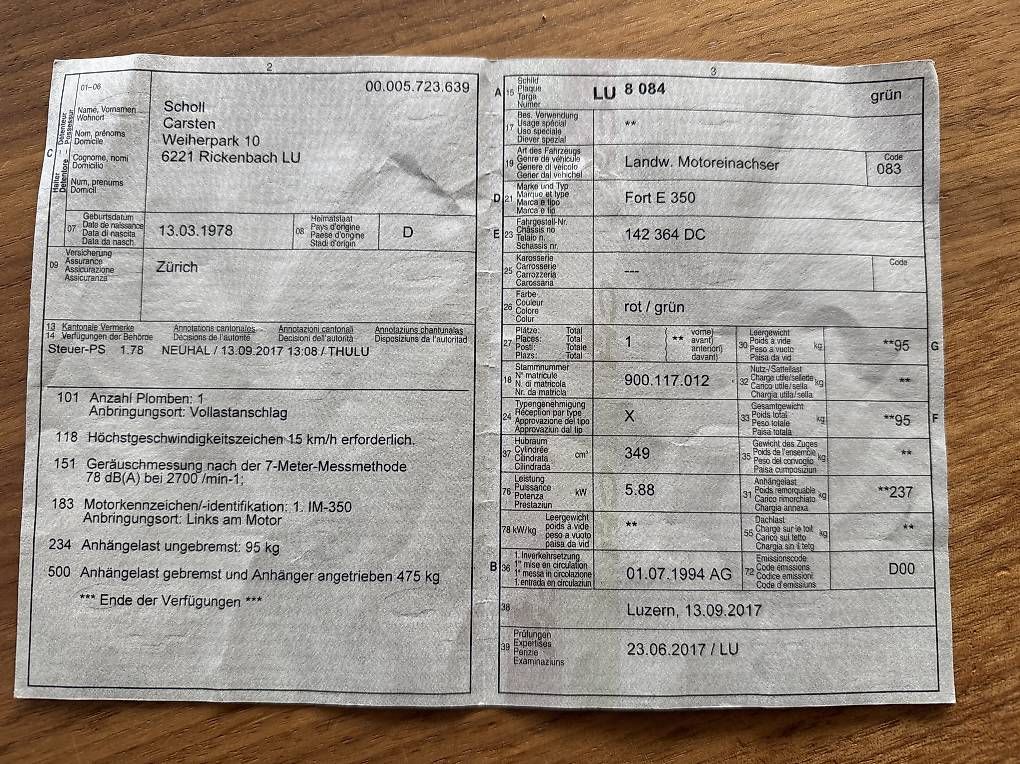 2
01-06
00.005.723.639
C
Halter
Détenteur
Detentore
Possessur
Name, Vornamen
Wohnort
Nom, prénoms
Domicile
Cognome, nomi
Domicilio
Num, prenums
Domicil
Scholl
Carsten
Weiherpark 10
6221 Rickenbach LU
07
Geburtsdatum
Date de naissance
Data di nascita
Data da nasch.
13.03.1978
08
Heimatstaat
Pays d'origine
Paese d'origine
Stadi d'origin
D
09
Versicherung
Assurance
Assicurazione
Assicuranza
Zürich
13 Kantonale Vermerke Annotations cantonales Annotazioni cantonali Annotaziuns chantunalas
14 Verfügungen der Behörde Décisions de l'autorité Decisioni dell'autorità Disposiziuns da l'autoritad
Steuer-PS 1.78 NEUHAL / 13.09.2017 13:08 / THULU
101 Anzahl Plomben: 1
Anbringungsort: Vollastanschlag
118 Höchstgeschwindigkeitszeichen 15 km/h erforderlich.
151 Geräuschmessung nach der 7-Meter-Messmethode
78 dB(A) bei 2700 /min-1;
183 Motorkennzeichen/-identifikation: 1. IM-350
Anbringungsort: Links am Motor
234 Anhängelast ungebremst: 95 kg
500 Anhängelast gebremst und Anhänger angetrieben 475 kg
*** Ende der Verfügungen ***
3
A 15
Schild
Plaque
Targa
Numer
LU 8 084 grün
17
Bes. Verwendung
Usage spécial
Uso speciale
Diever spezial
**
19
Art des Fahrzeugs
Genre de véhicule
Genere di veicolo
Gener dal vehichel
Landw. Motoreinachser
Code
083
D 21
Marke und Typ
Marque et type
Marca e tipo
Marca e tip
Fort E 350
E 23
Fahrgestell-Nr.
Châssis no
Telaio n.
Schassis nr.
142 364 DC
25
Karosserie
Carrosserie
Carrozzeria
Carossaria
---
Code
26
Farbe
Couleur
Colore
Colur
rot / grün
27
Plätze: Total
Places: Total
Posti: Totale
Plazs: Total
1
**
vorne)
avant)
anteriori)
davant)
30
Leergewicht
Poids à vide
Peso a vuoto
Paisa da vid
kg
**95
G
18
Stammnummer
N° matricule
N. di matricola
Nr. da matricla
900.117.012
32
Nutz-/Sattellast
Charge utile/sellette
Carico utile/sella
Chargia utila/sella
kg
**
24
Typengenehmigung
Réception par type
Approvazione del tipo
Approvaziun dal tip
X
33
Gesamtgewicht
Poids total
Peso totale
Paisa totala
kg
**95
F
37
Hubraum
Cylindrée
Cilindrata
Cilindrada
cm³
349
35
Gewicht des Zuges
Poids de l'ensemble
Peso del convoglio
Paisa cumposiziun
kg
**
76
Leistung
Puissance
Potenza
Prestaziun
kW
5.88
31
Anhängelast
Poids remorquable
Carico rimorchiato
Chargia annexa
kg
**237
78 kW/kg
Leergewicht
poids à vide
peso a vuoto
paisa da vid
**
55
Dachlast
Charge sur le toit
Carico sul tetto
Chargia sin il tetg
kg
**
B 36
1. Inverkehrsetzung
1re mise en circulation
1a messa in circolazione
1. entrada en circulaziun
01.07.1994 AG
72
Emissionscode
Code émissions
Codice emissioni
Code d'emissiuns
D00
38
Luzern, 13.09.2017
39
Prüfungen
Expertises
Perizie
Examinaziuns
23.06.2017 / LU